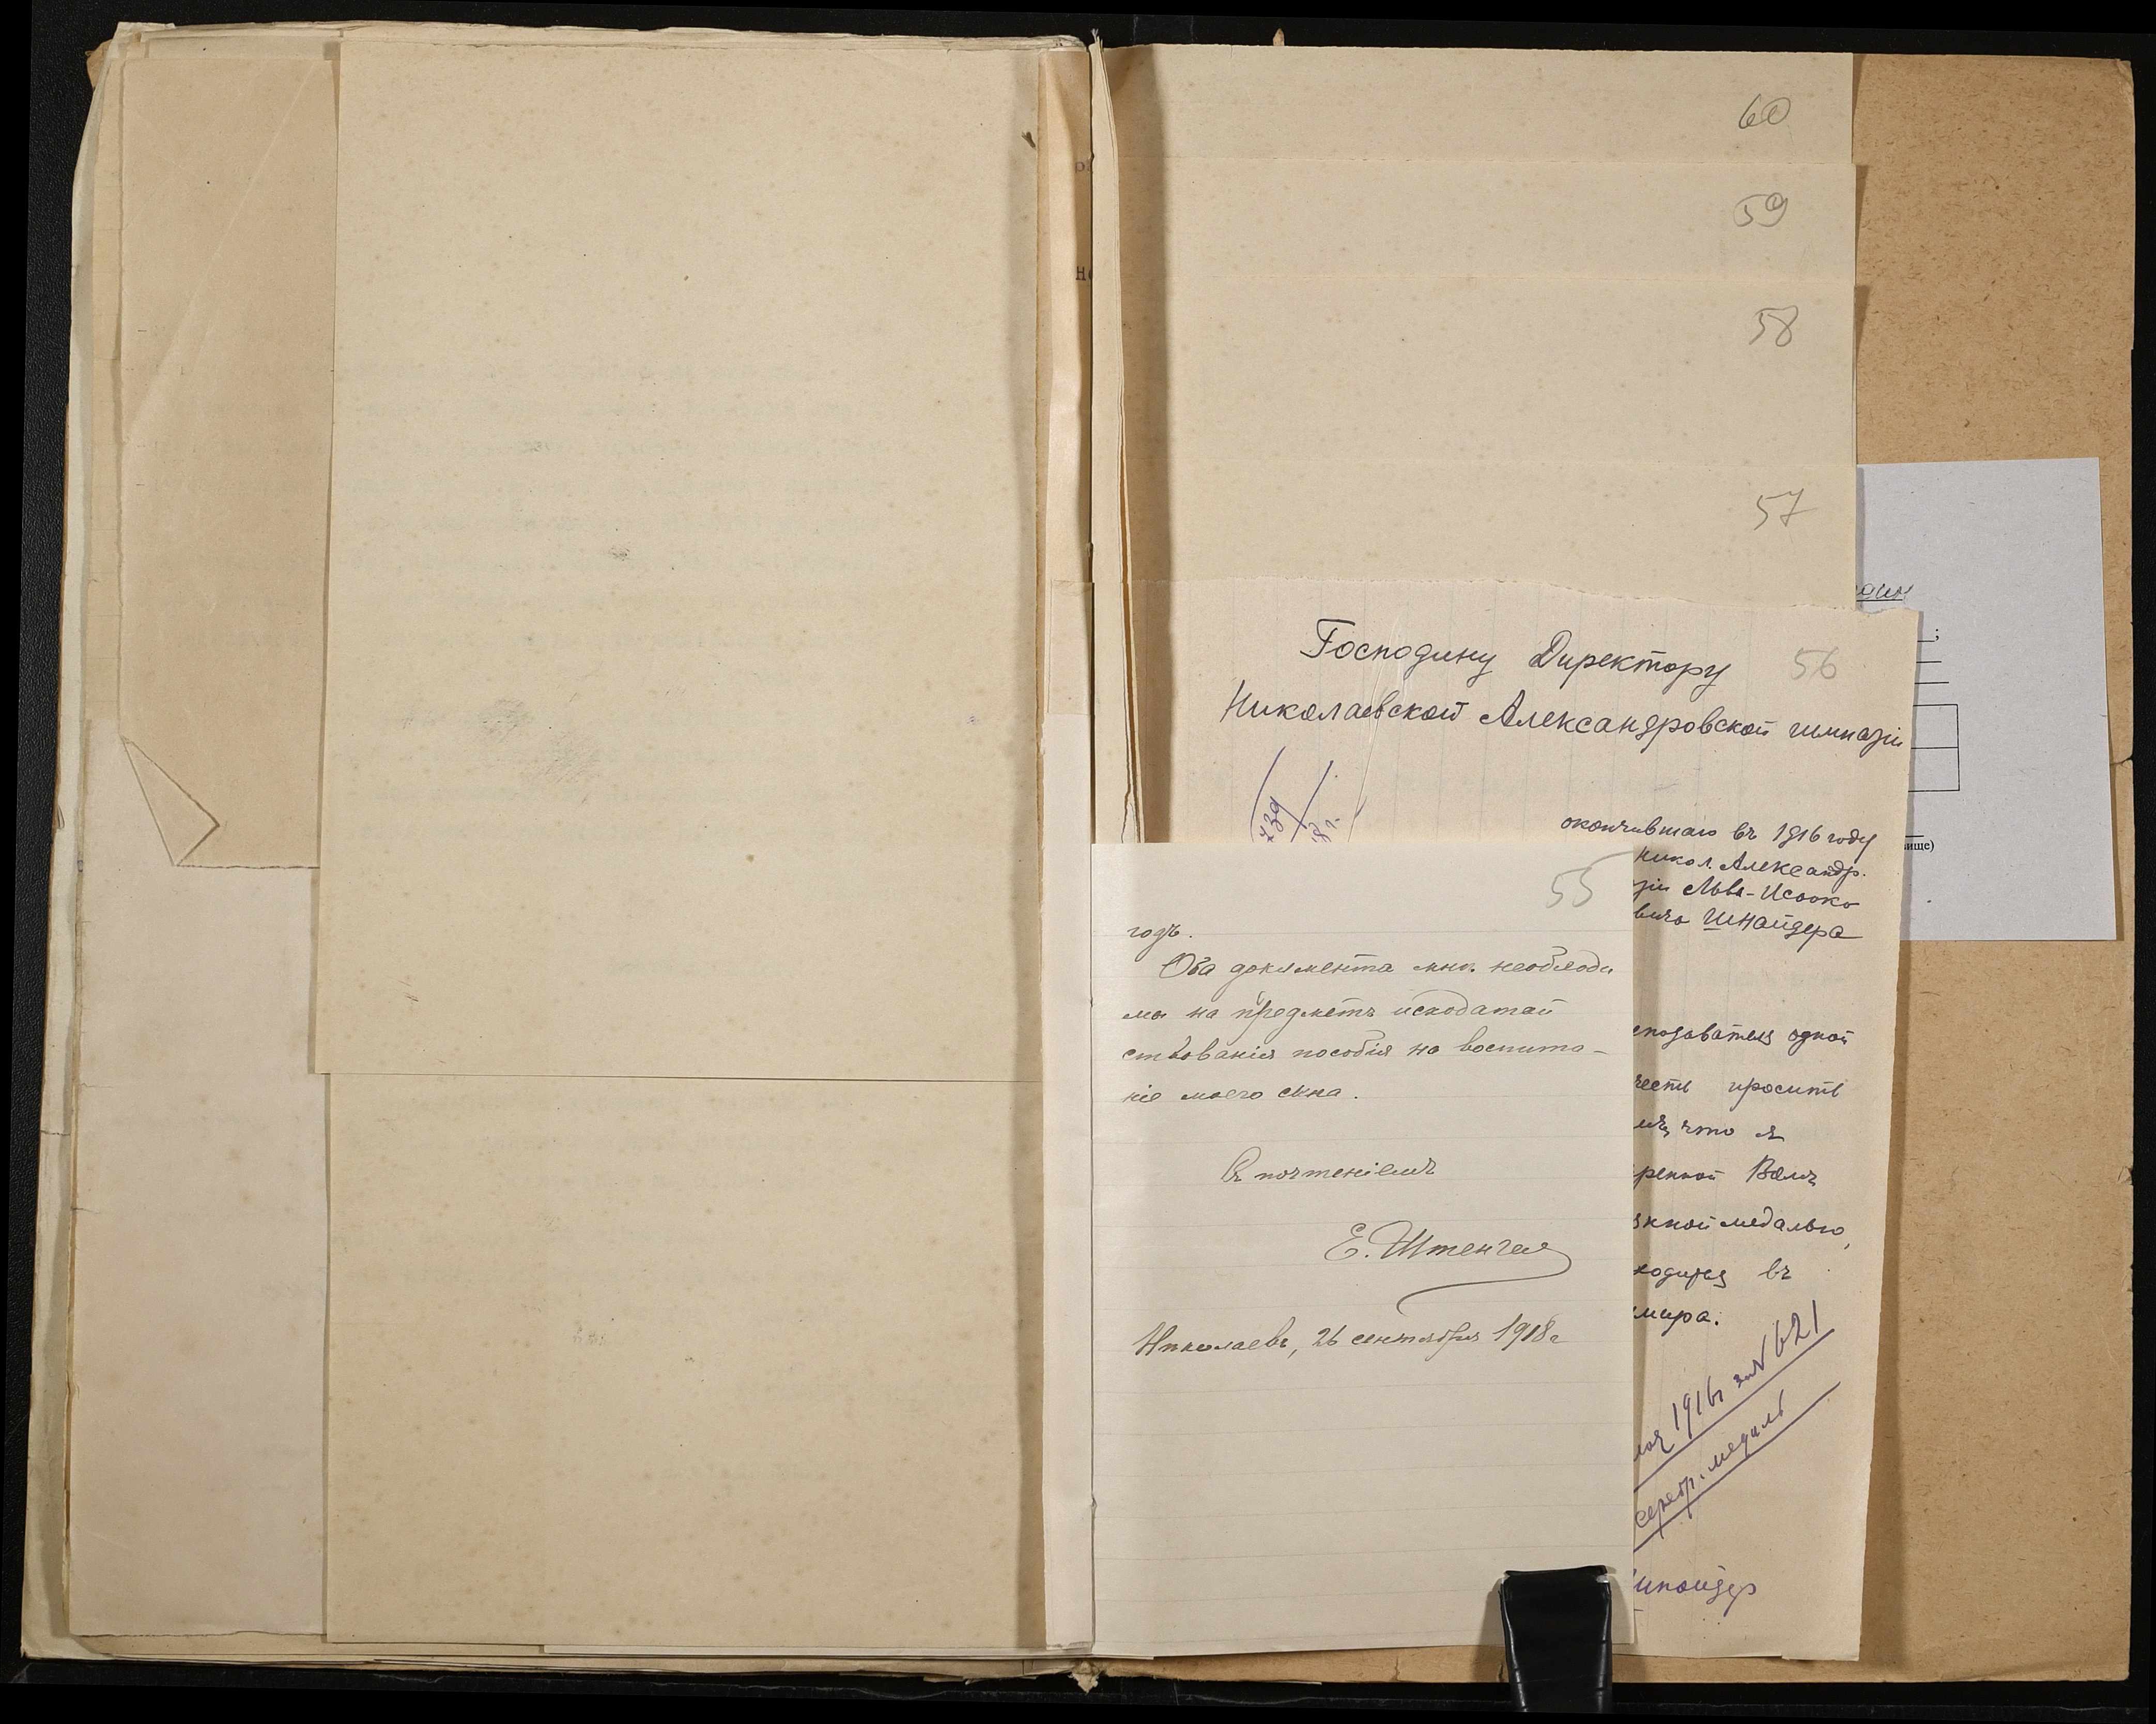 60
59
58
57
56
Господину Директору
Николаевской Александровской гимназіи
739
окончившаго въ 1916 году
Никол. Александр.
зіи Льва-Исаако
вича Шнайдера
еподаватель одной
честь просить
что я
ренной Вамъ
медалью,
ходится въ
мира.
1916 г за № 621
серебр. медаль
Шнайдер
55
годъ.
Оба документа мнѣ необходи
мы на предметъ исходатай
ствованія пособія на воспита-
ніе моего сына.
Съ почтеніемъ
Е. Штенгель
Николаевъ, 26 сентября 1918 г
ище)